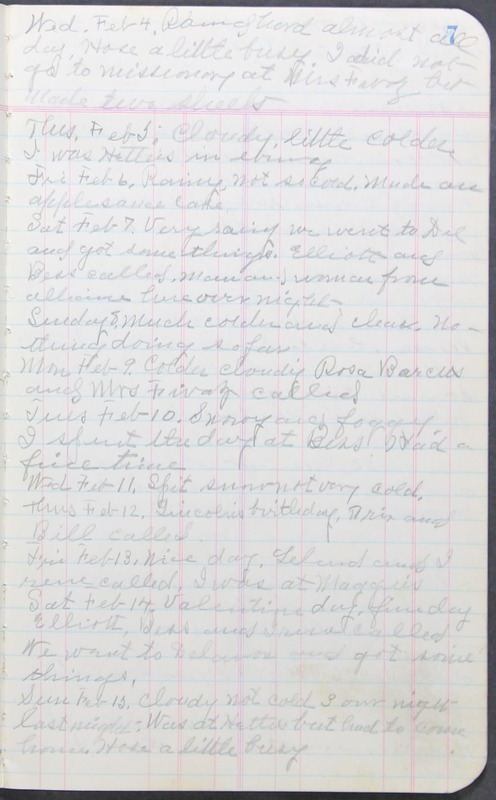 7
Wed. Feb 4. Rained hard almost all
day. Hose a little busy. I did not
go to missionary at Mrs Fivaz but
made two sheets
Thus, Feb 5; Cloudy, little colder.
I was Hetties in
Fri Feb 6. Rainy, not so cold. Made an
applesauce cake.
Sat Feb 7. Very rainy we went to Del
and got some things. Elliott and
Bess called. man and woman from
here over night
Sunday 8 Much colder and clear. No-
thing doing so far
Mon Feb 9. Colder cloudy Rosa Barcus
and Mrs Fivaz called
Tues Feb 10. Snowy and foggy
I spent the day at Bess. Had a
fine time
Wed Feb 11. Spit snow not very cold.
Thus Feb 12. Lincolns birthday, and
Bill called.
Fri Feb 13. Nice day. Leland and I
rene called, I was at Maggies
Sat Feb 14, Valentine day, fine day
Elliott, Bess and Irene called
We want to and got some
things.
Sun Feb 15. Cloudy not cold 3 over night
last night. Was at Hetties but had to come
home Hose a little busy